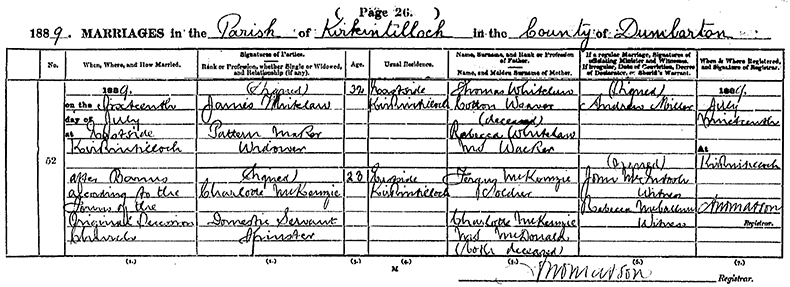 ( Page 26. )
1889. MARRIAGES in the Parish of Kirkintilloch in the County of Dumbarton
No.
When, Where, and How Married.
Signatures of Parties.
Rank or Profession, whether Single or Widowed, and Relationship (if any).
Age.
Usual Residence.
Name, Surname, and Rank or Profession of Father.
Name, and Maiden Surname of Mother.
If a regular Marriage, Signatures of officiating Minister and Witnesses.
If irregular, Date of Conviction, Decree of Declarator, or Sheriff's Warrant.
When & Where Registered, and Signature of Registrar.
52
1889.
on the Sixteenth
day of July
at Eastside
Kirkintilloch
after Banns
according to the
Forms of the
Original Secession
Church
(Signed)
James Whitelaw
Pattern Maker
Widower
(Signed)
Charlotte McKenzie
Domestic Servant
Spinster
32
23
Eastside
Kirkintilloch
Eastside
Kirkintilloch
Thomas Whitelaw
Cotton Weaver
(deceased)
Rebecca Whitelaw
M.S. Walker
Fergus McKenzie
Soldier
Charlotte McKenzie
M.S. McDonald
(both deceased)
(Signed)
Andrew Miller
(Signed)
John McIntosh
Witness
Rebecca McCallum
Witness
1889.
July
Nineteenth
At
Kirkintilloch
Registrar.
(1.)
(2.)
(3.)
(4.)
(5.)
(6.)
(7.)
M
Registrar.